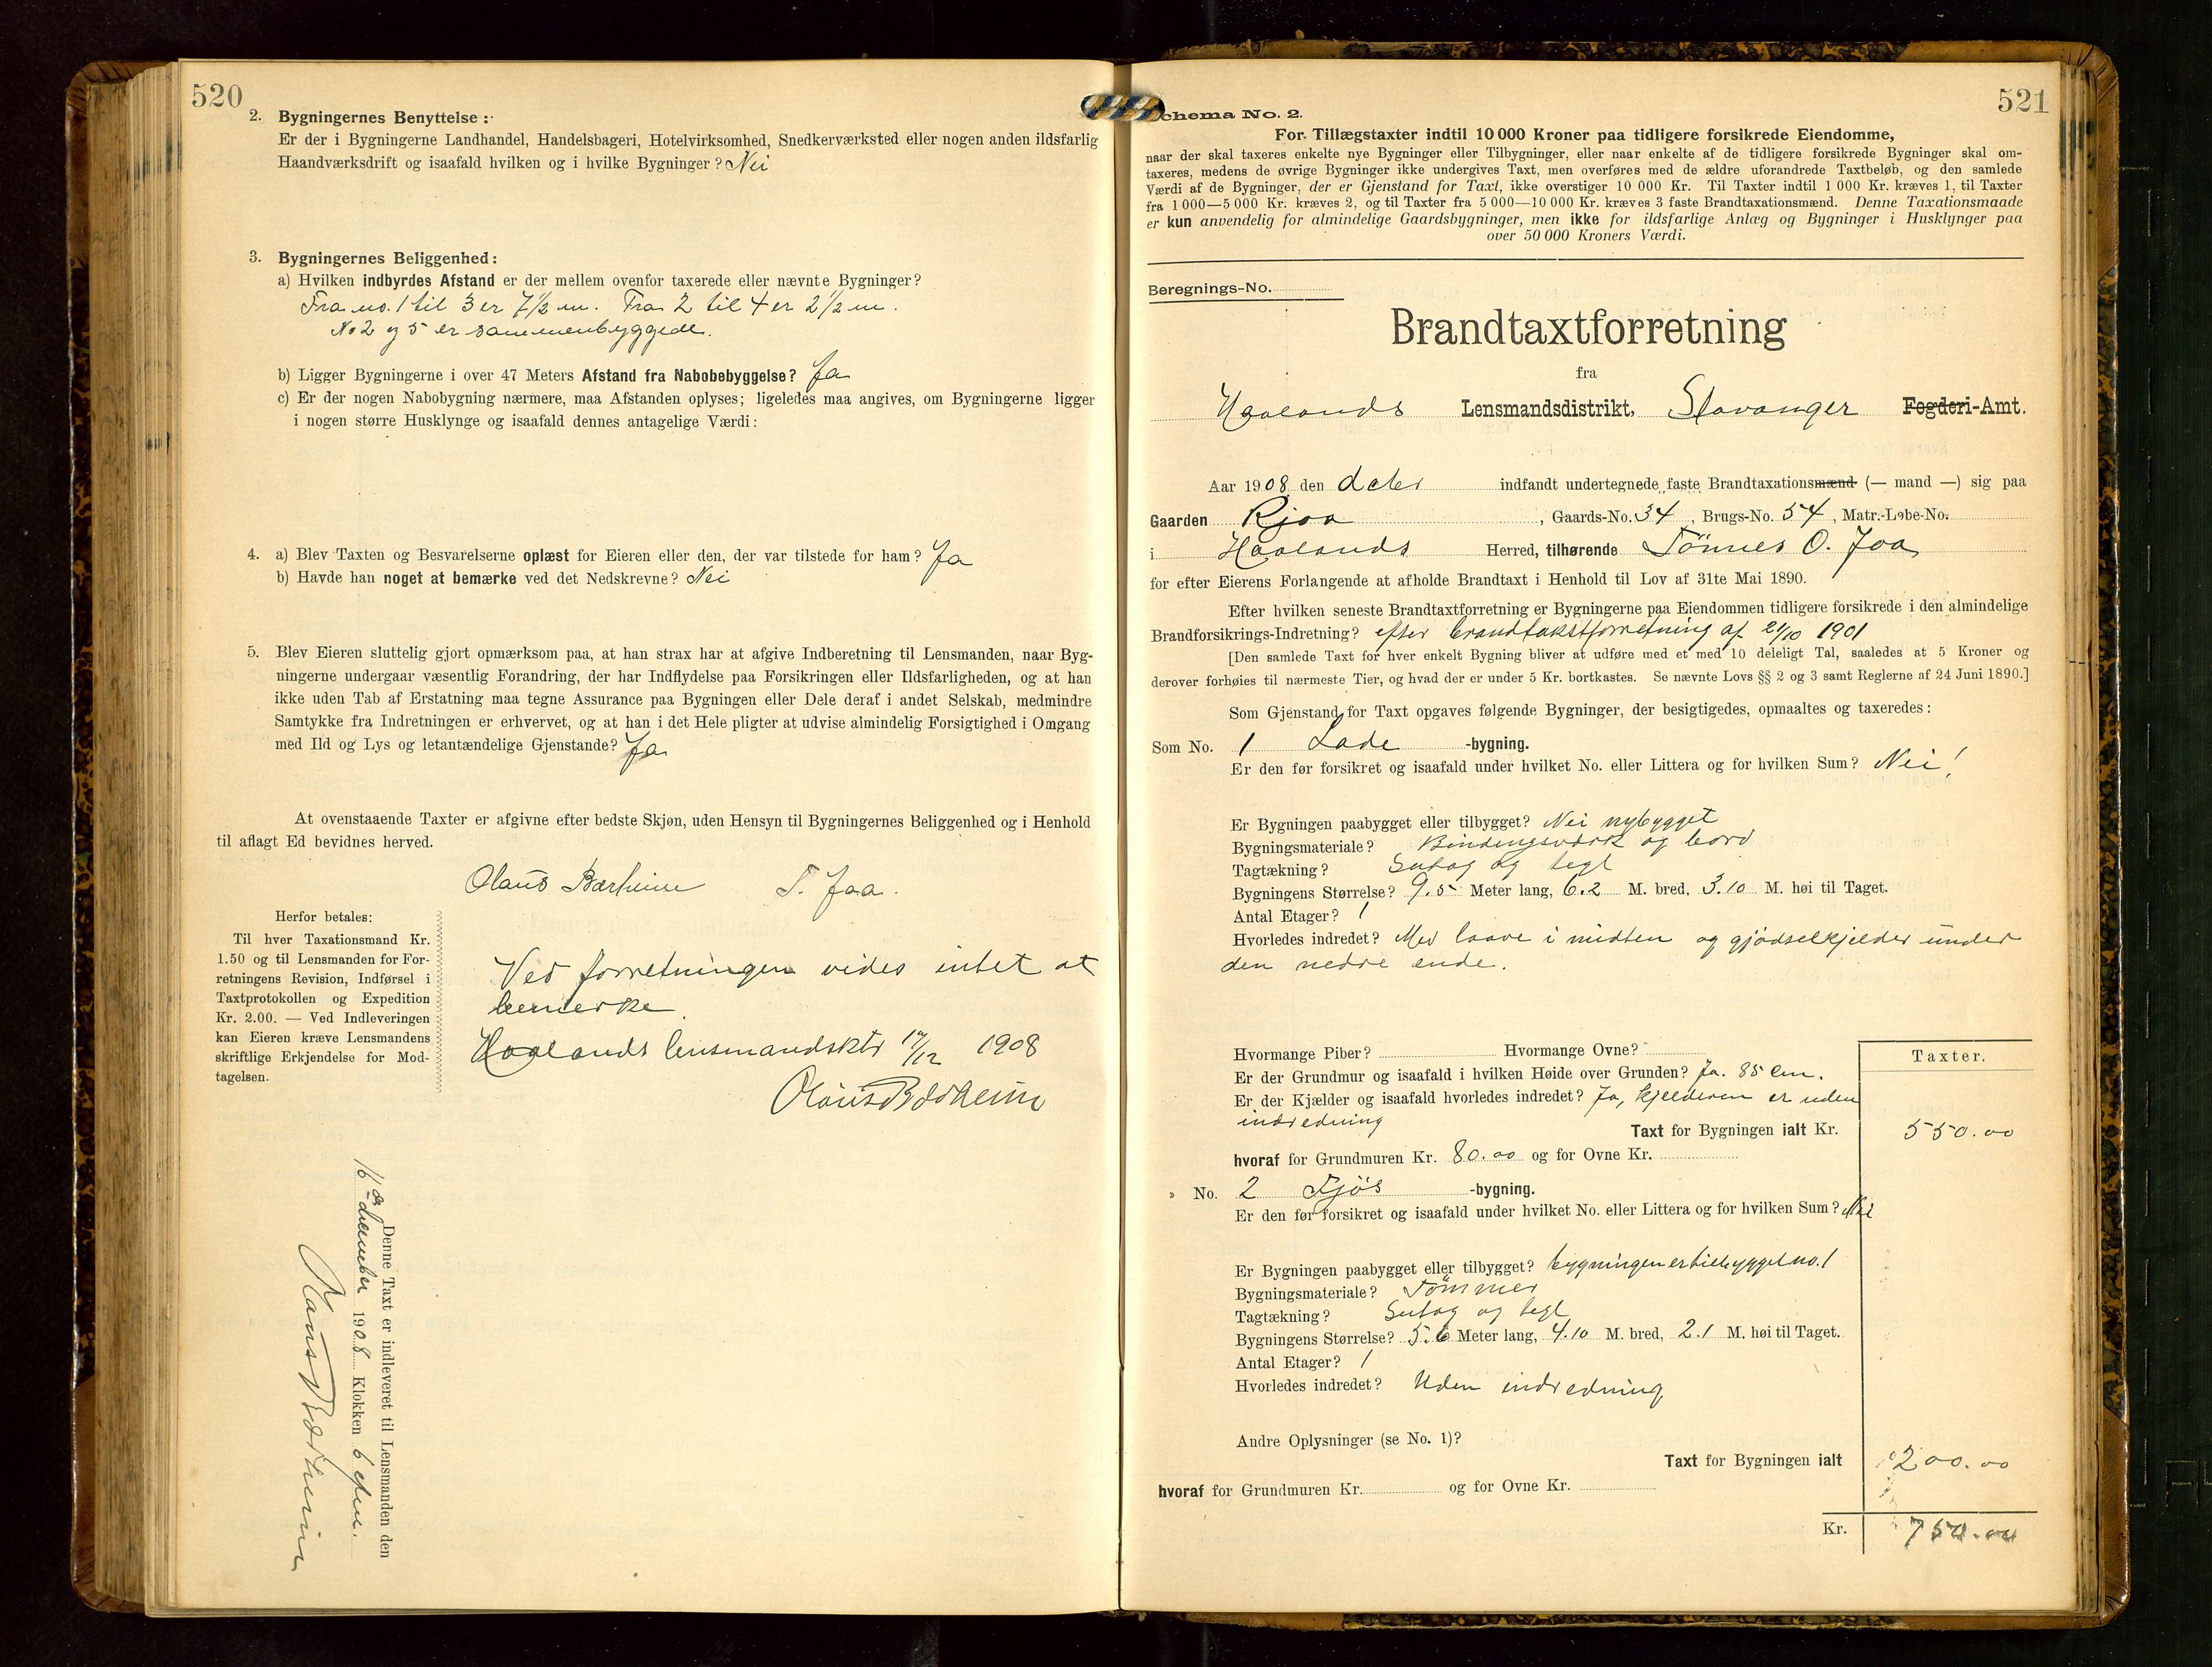 520
2. Bygningernes Benyttelse :
Er der i Bygningerne Landhandel, Handelsbageri, Hotelvirksomhed, Snedkerværksted eller nogen anden ildsfarlig
Haandværksdrift og isaafald hvilken og i hvilke Bygninger ? Nei
3. Bygningernes Beliggenhed :
a) Hvilken indbyrdes Afstand er der mellem ovenfor taxerede eller nævnte Bygninger ?
Fra no. 1 til 3 er 7 1/2 m. Fra 2 til 4 er 2 1/2 m.
No 2 og 5 er sammenbyggede.
b) Ligger Bygningerne i over 47 Meters Afstand fra Nabobebyggelse? Ja
c) Er der nogen Nabobygning nærmere, maa Afstanden oplyses; ligeledes maa angives, om Bygningerne ligger
i nogen større Husklynge og isaafald dennes antagelige Værdi :
4. a) Blev Taxten og Besvarelserne oplæst for Eieren eller den, der var tilstede for ham ? Ja
b) Havde han noget at bemærke ved det Nedskrevne ? Nei
5. Blev Eieren sluttelig gjort opmærksom paa, at han strax har at afgive Indberetning til Lensmanden, naar Byg-
ningerne undergaar væsentlig Forandring, der har Indflydelse paa Forsikringen eller Ildsfarligheden, og at han
ikke uden Tab af Erstatning maa tegne Assurance paa Bygningen eller Dele deraf i andet Selskab, medmindre
Samtykke fra Indretningen er erhvervet, og at han i det Hele pligter at udvise almindelig Forsigtighed i Omgang
med Ild og Lys og letantændelige Gjenstande? Ja
At ovenstaaende Taxter er afgivne efter bedste Skjøn, uden Hensyn til Bygningernes Beliggenhed og i Henhold
til aflagt Ed bevidnes herved.
Olaus Bærheim T. Jaa.
Herfor betales:
Til hver Taxationsmand Kr.
1.50 og til Lensmanden for For-
retningens Revision, Indførsel i
Taxtprotokollen og Expedition
Kr. 2.00. — Ved Indleveringen
kan Eieren kræve Lensmandens
skriftlige Erkjendelse for Mod-
tagelsen.
Ved forretningen vides intet at
bemerke.
Haalands lensmandsktr /12 1908
Olaus Bærheim
Denne Taxt er indleveret til Lensmanden den
december 1908 Klokken 6 efm.
Bærheim
521
Schema No. 2.
For Tillægstaxter indtil 10 000 Kroner paa tidligere forsikrede Eiendomme,
naar der skal taxeres enkelte nye Bygninger eller Tilbygninger, eller naar enkelte af de tidligere forsikrede Bygninger skal om-
taxeres, medens de øvrige Bygninger ikke undergives Taxt, men overføres med de ældre uforandrede Taxtbeløb, og den samlede
Værdi af de Bygninger, der er Gjenstand for Taxt, ikke overstiger 10 000 Kr. Til Taxter indtil 1 000 Kr. kræves 1, til Taxter
fra 1 000—5 000 Kr. kræves 2, og til Taxter fra 5 000—10 000 Kr. kræves 3 faste Brandtaxationsmænd. Denne Taxationsmaade
er kun anvendelig for almindelige Gaardsbygninger, men ikke for ildsfarlige Anlæg og Bygninger i Husklynger paa
over 50 000 Kroners Værdi.
Beregnings-No.
Brandtaxtforretning
fra
Haalands Lensmandsdistrikt, Stavanger Fogderi-Amt.
Aar 1908 den indfandt undertegnede faste Brandtaxationsmænd (— mand —) sig paa
Gaarden Kjaa, Gaards-No. 34, Brugs-No. 54, Matr.-Løbe-No.
i Haalands Herred, tilhørende Tönnes O. Jaa
for efter Eierens Forlangende at afholde Brandtaxt i Henhold til Lov af 31te Mai 1890.
Efter hvilken seneste Brandtaxtforretning er Bygningerne paa Eiendommen tidligere forsikrede i den almindelige
Brandforsikrings-Indretning? efter brandtakstforretning af 21/10 1901
[Den samlede Taxt for hver enkelt Bygning bliver at udføre med et med 10 deleligt Tal, saaledes at 5 Kroner og
derover forhøies til nærmeste Tier, og hvad der er under 5 Kr. bortkastes. Se nævnte Lovs §§ 2 og 3 samt Reglerne af 24 Juni 1890.]
Som Gjenstand for Taxt opgaves følgende Bygninger, der besigtigedes, opmaaltes og taxeredes :
Som No. 1 Lade -bygning.
Er den før forsikret og isaafald under hvilket No. eller Littera og for hvilken Sum ? Nei!
Er Bygningen paabygget eller tilbygget ? Nei nybygget
Bygningsmateriale ? Bindingsværk og bord
Tagtækning ? Sutag og tegl
Bygningens Størrelse ? 9.5 Meter lang, 6.2 M. bred, 3.10 M. høi til Taget.
Antal Etager ? 1
Hvorledes indredet ? Med laave i midten og gjødselkjelder under
den nedre ende.
Hvormange Piber ? Hvormange Ovne ?
Er der Grundmur og isaafald i hvilken Høide over Grunden ? Ja. 85 cm.
Er der Kjælder og isaafald hvorledes indredet ? Ja, kjelderen er uden
indredning
Taxter.
Taxt for Bygningen ialt Kr. 550.00
hvoraf for Grundmuren Kr. 80.00 og for Ovne Kr.
» No. 2 Fjøs -bygning.
Er den før forsikret og isaafald under hvilket No. eller Littera og for hvilken Sum ? Nei
Er Bygningen paabygget eller tilbygget ? bygningen er tilbygget no. 1
Bygningsmateriale ? Tömmer
Tagtækning ? Sutag og tegl
Bygningens Størrelse ? 5.6 Meter lang, 4.10 M. bred, 2.1 M. høi til Taget.
Antal Etager ? 1
Hvorledes indredet ? Uden indredning
Andre Oplysninger (se No. 1) ?
Taxt for Bygningen ialt 200.00
hvoraf for Grundmuren Kr. og for Ovne Kr.
Kr. 750.00